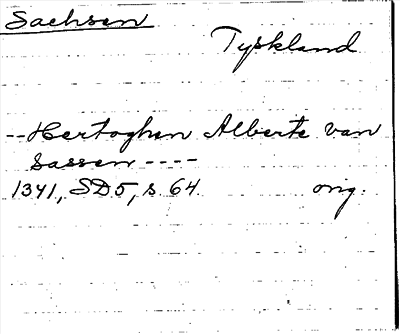 Sachsen
Tyskland
-- Hertoghen Alberte van
Sassen ----
1341, SD5, s 64 orig.